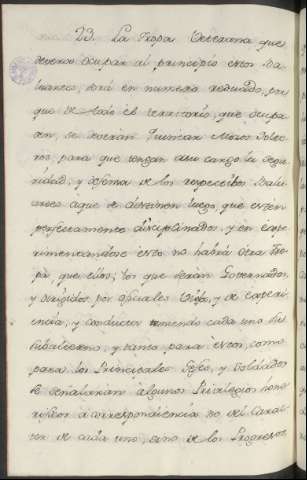 23. La Tropa Veterana que
deverá ocupar al principio estos Ba-
luartes, será en numero reducido, por
que de todo el territorio, que ocupa
en, se deverán Mozos Solte-
ros, para que tengan a su cargo la segu-
ridad, y defensa de los respectivos Balu-
artes a que se destinen luego, que esten
perfectamente disciplinados, y en expe-
rimentandose esto no habrá otra Tro-
pa, que ellos; los que serán Governados,
y dirigidos por oficiales viejos, y de experi-
encia, y conducta teniendo cada uno su
subalterno, y tanto para estos, como
para los Principales Gefes, y Soldados
se señalarán algunos Privilegios hono-
rificos a correspondiencia no del Carac-
ter de cada uno, sino de los Progresos